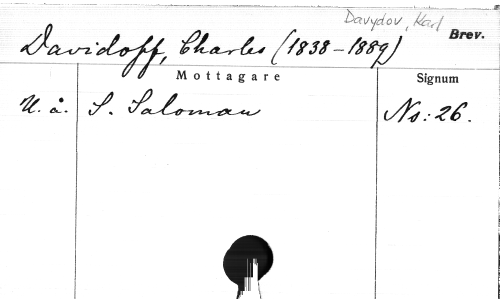 Davydov, Karl
Brev.
Davidoff, Charles (1838–1889)
Mottagare
Signum
U. å.
S. Saloman
No: 26.